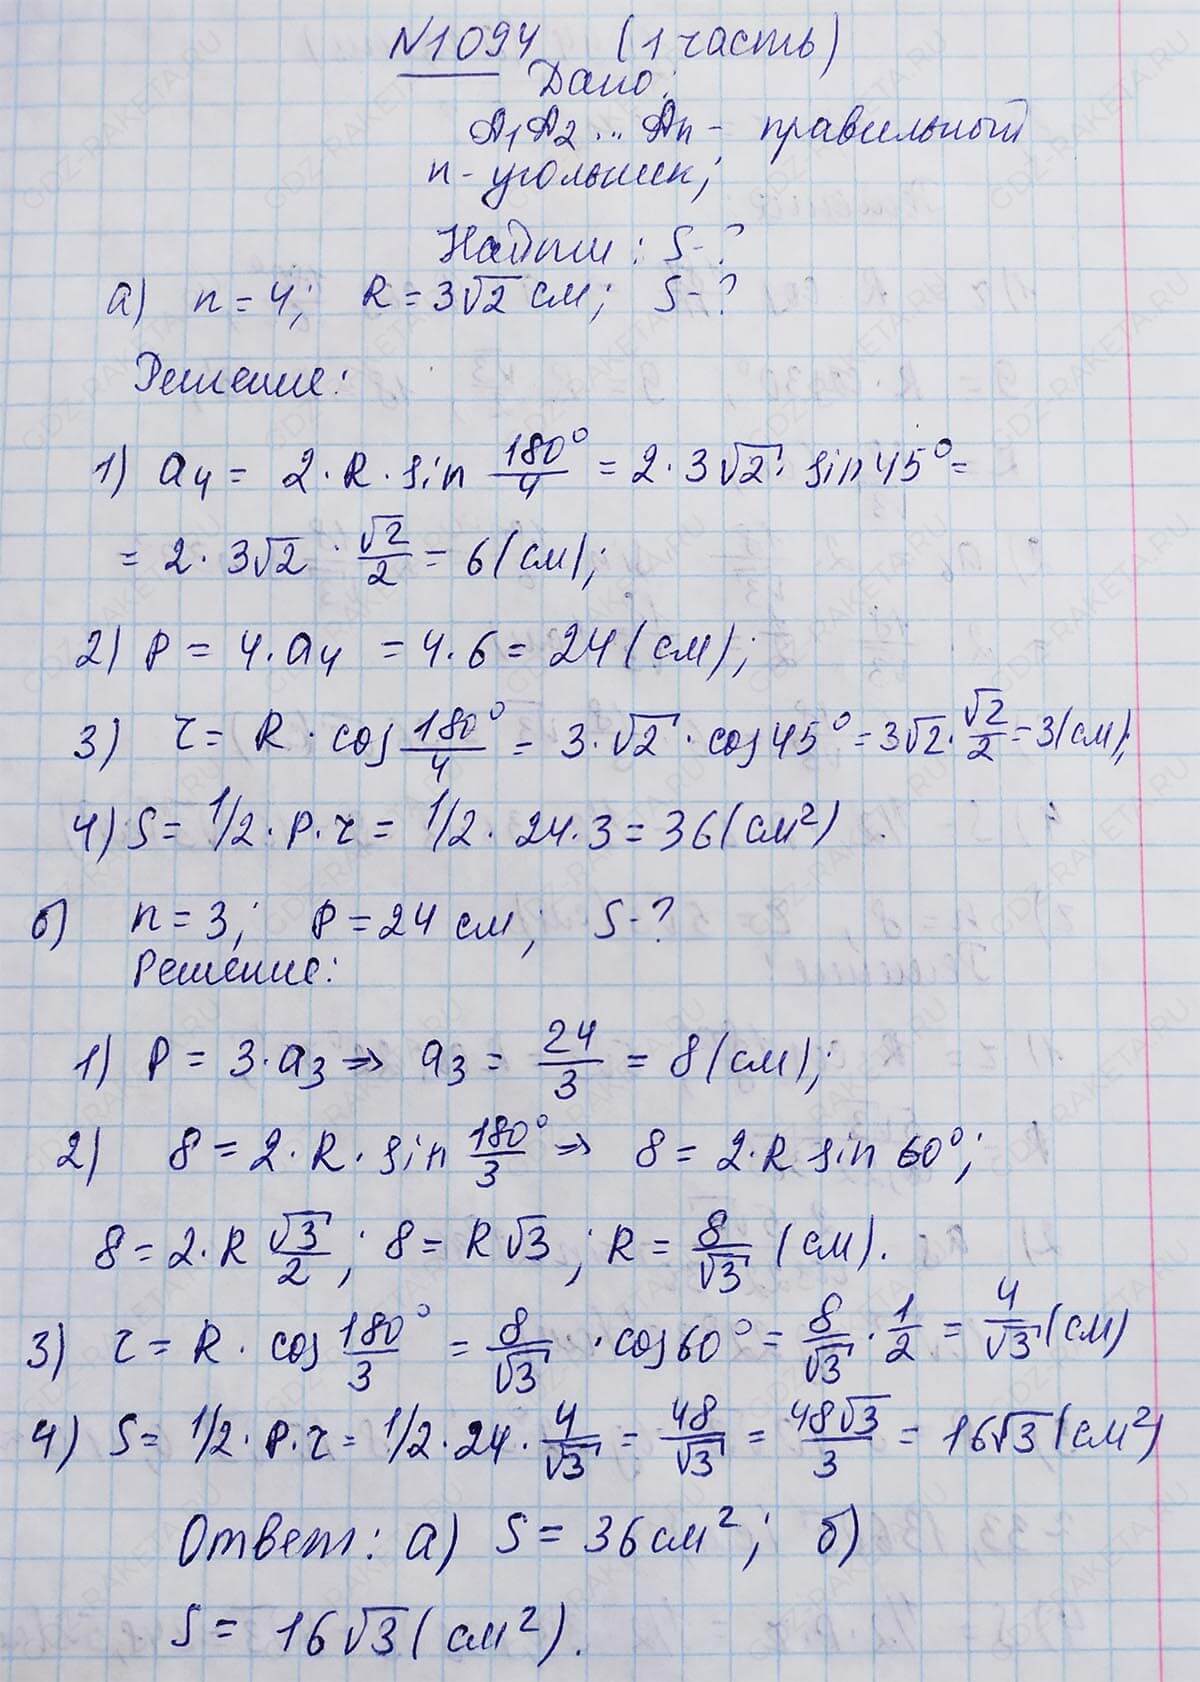 N1094 (1 часть)
Дано:
A1A2...An - правильный
n-угольник;
Найти: S-?
а) n=4; R=3√2 см; S-?
Решение:
1) a4 = 2·R·sin 180°/4 = 2·3√2·sin45°=
= 2·3√2·√2/2 = 6(см);
2) P = 4·a4 = 4·6 = 24(см);
3) r = R·cos 180°/4 = 3·√2·cos45° = 3√2·√2/2 = 3(см);
4) S = 1/2·P·r = 1/2·24·3 = 36(см²)
б) n=3; P=24 см; S-?
Решение:
1) P = 3·a3 ⇒ a3 = 24/3 = 8(см);
2) 8 = 2·R·sin 180°/3 ⇒ 8 = 2·R sin 60°;
8 = 2·R √3/2; 8 = R√3; R = 8/√3 (см).
3) r = R·cos 180°/3 = 8/√3 ·cos60° = 8/√3·1/2 = 4/√3 (см)
4) S = 1/2·P·r = 1/2·24·4/√3 = 48/√3 = 48√3/3 = 16√3(см²)
Ответ: а) S = 36см²; б)
S = 16√3(см²).
GDZ-RAKETA.RU